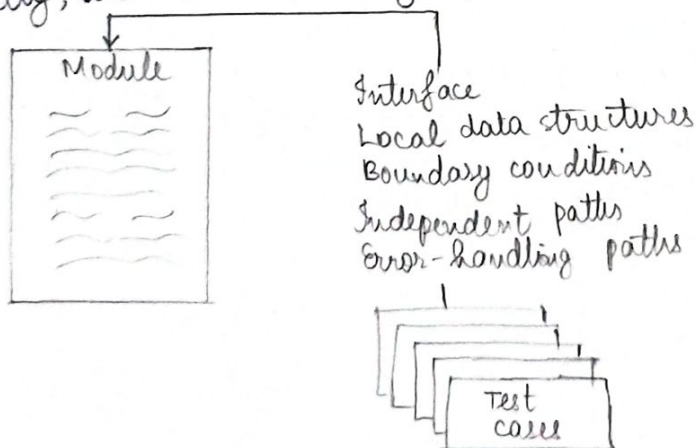 Module
Interface
Local data structures
Boundary conditions
Independent paths
Error-handling paths
Test
cases